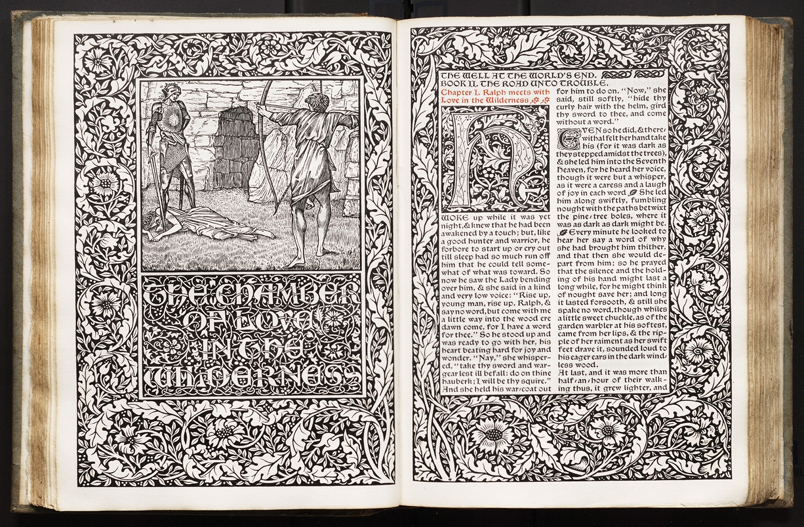 THE:CHAMBER
OF LOVE
IN THE
WILDERNESS
THE WELL AT THE WORLD'S END.
BOOK II. THE ROAD UNTO TROUBLE.
Chapter I. Ralph meets with
Love in the Wilderness
H
WOKE up while it was yet
night, & knew that he had been
awakened by a touch; but, like
a good hunter and warrior, he
forbore to start up or cry out
till sleep had so much run off
him that he could tell some-
what of what was toward. So
now he saw the Lady bending
over him, & she said in a kind
and very low voice: "Rise up,
young man, rise up, Ralph, &
say no word, but come with me
a little way into the wood ere
dawn come, for I have a word
for thee." So he stood up and
was ready to go with her, his
heart beating hard for joy and
wonder. "Nay," she whisper-
ed, "take thy sword and war-
gear lest ill befall: do on thine
hauberk; I will be thy squire."
And she held his war-coat out
for him to do on. "Now," she
said, still softly, "hide thy
curly hair with the helm, gird
thy sword to thee, and come
without a word."
EVEN so he did, & there-
withal felt her hand take
his (for it was dark as
they stepped amidst the trees),
& she led him into the Seventh
Heaven, for he heard her voice,
though it were but a whisper,
as it were a caress and a laugh
of joy in each word. She led
him along swiftly, fumbling
nought with the paths betwixt
the pine-tree boles, where it
was as dark as dark might be.
Every minute he looked to
hear her say a word of why
she had brought him thither,
and that then she would de-
part from him; so he prayed
that the silence and the hold-
ing of his hand might last a
long while, for he might think
of nought save her; and long
it lasted forsooth, & still she
spake no word, though whiles
a little sweet chuckle, as of the
garden warbler at his softest,
came from her lips, & the rip-
ple of her raiment as her swift
feet drave it, sounded loud to
his eager ears in the dark wind-
less wood.
At last, and it was more than
half-an-hour of their walk-
ing thus, it grew lighter, and